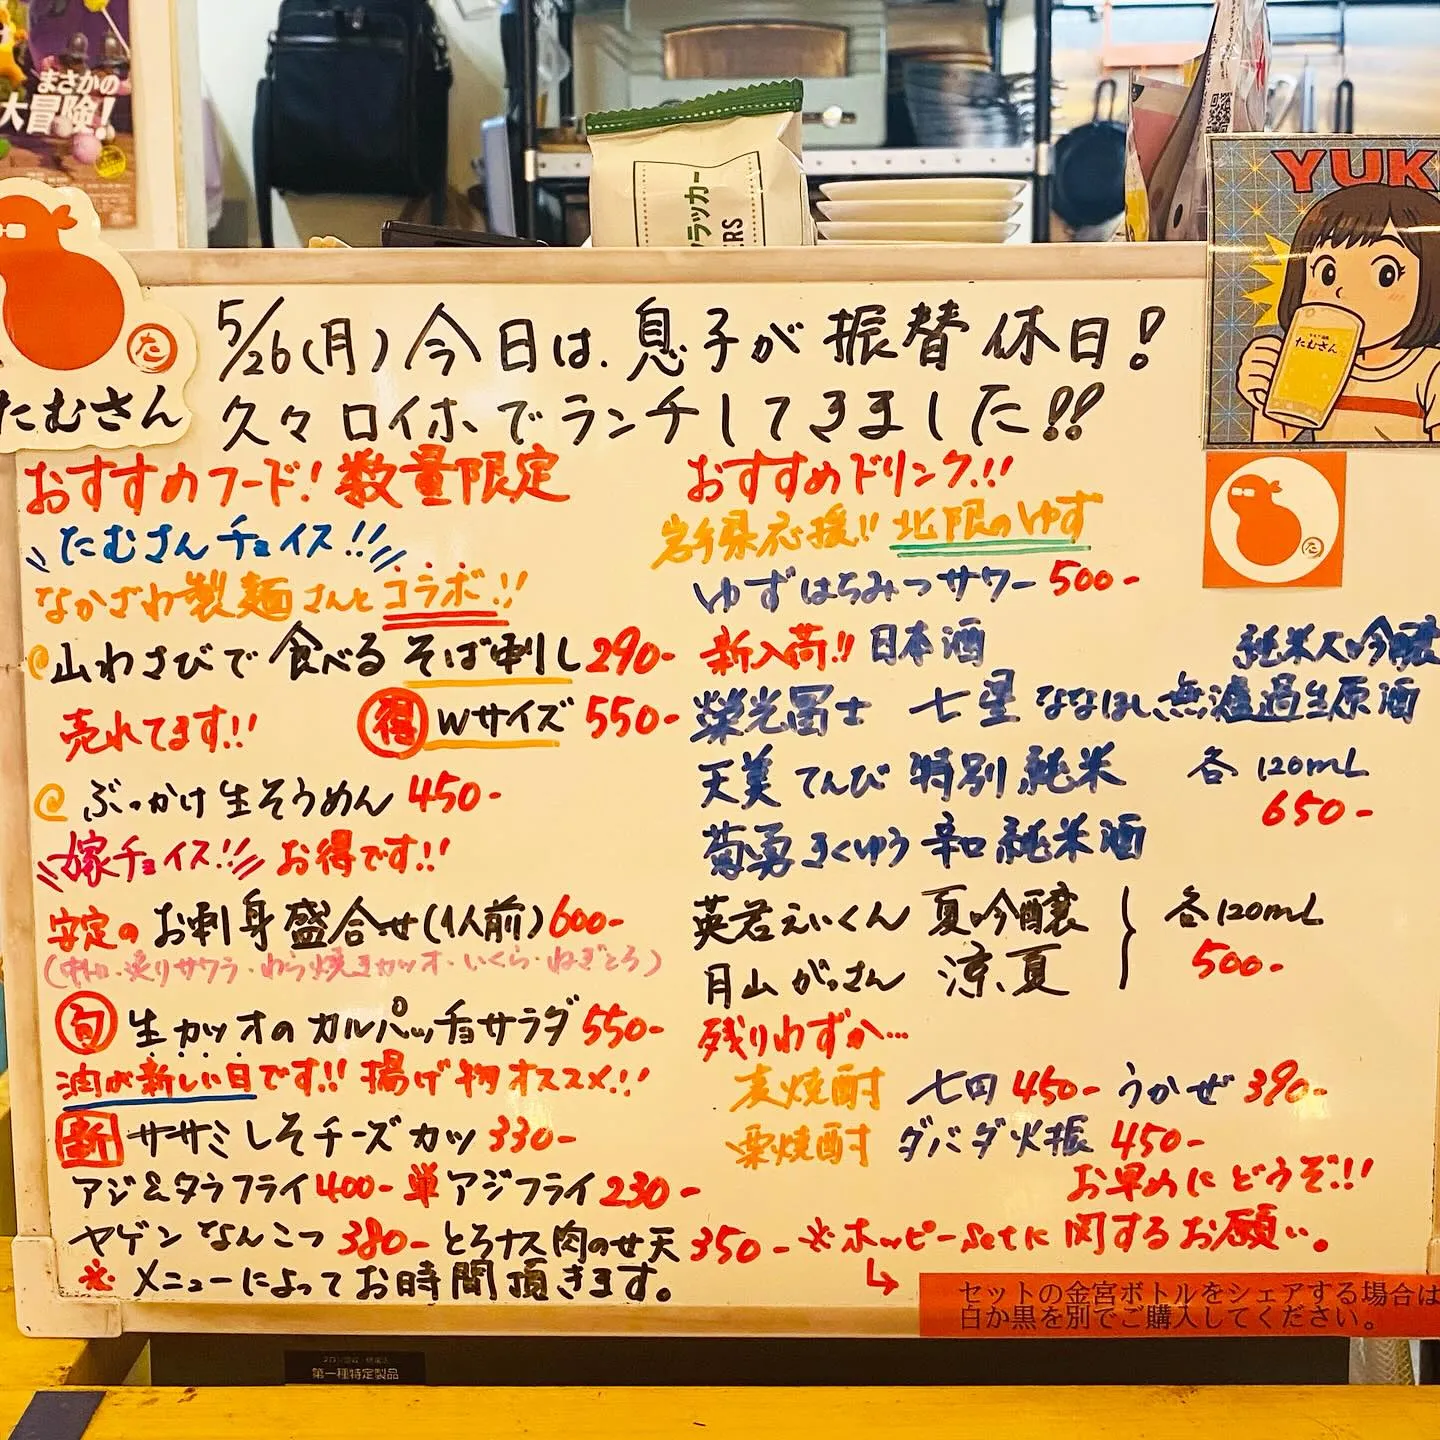 まさかの
大冒険!
クラッカー
ERS
YUK
たむさん
た
たむさん
5/26(月)今日は、息子が振替休日!
久々ロイホでランチしてきました!!
おすすめフード!数量限定
たむさんチョイス!!
なかざわ製麺さんとコラボ!!
山わさびで食べるそば刺し290-
売れてます!! 得 Wサイズ 550-
ぶっかけ生そうめん 450-
嫁チョイス!! お得です!!
安定のお刺身盛合せ(1人前)600-
(中トロ・炙りサワラ・わら焼きカツオ・いくら・ねぎとろ)
旬 生カツオのカルパッチョサラダ550-
油が新しい日です!! 揚げ物オススメ!!
新 ササミしそチーズカツ 330-
アジ&タラフライ400- 単アジフライ230-
ヤゲンなんこつ 380- とろナス肉のせ天350-
※メニューによってお時間頂きます。
おすすめドリンク!!
岩手県応援!! 北限のゆず
ゆずはちみつサワー500-
新入荷!! 日本酒 純米大吟醸
榮光冨士 七星 ななほし 無濾過生原酒
天美 てんび 特別純米 各120mL
650-
菊勇 きくゆう 辛口純米酒
英君えいくん 夏吟醸 各120mL
月山がっさん 涼夏 500-
残りわずか…
麦焼酎 七田450- うかぜ390-
栗焼酎 ダバダ火振 450-
お早めにどうぞ!!
※ホッピーsetに関するお願い。
セットの金宮ボトルをシェアする場合は
白か黒を別でご購入してください。
た
第一種特定製品